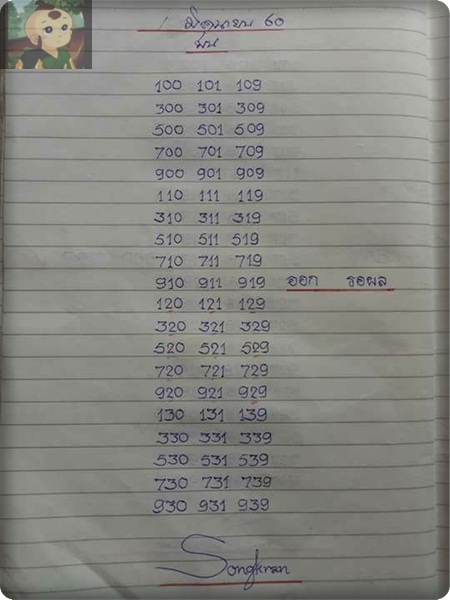 1 มิถุนายน 60
บน
100 101 109
300 301 309
500 501 509
700 701 709
900 901 909
110 111 119
310 311 319
510 511 519
710 711 719
910 911 919 ออก รอผล
120 121 129
320 321 329
520 521 529
720 721 729
920 921 929
130 131 139
330 331 339
530 531 539
730 731 739
930 931 939
Songkran